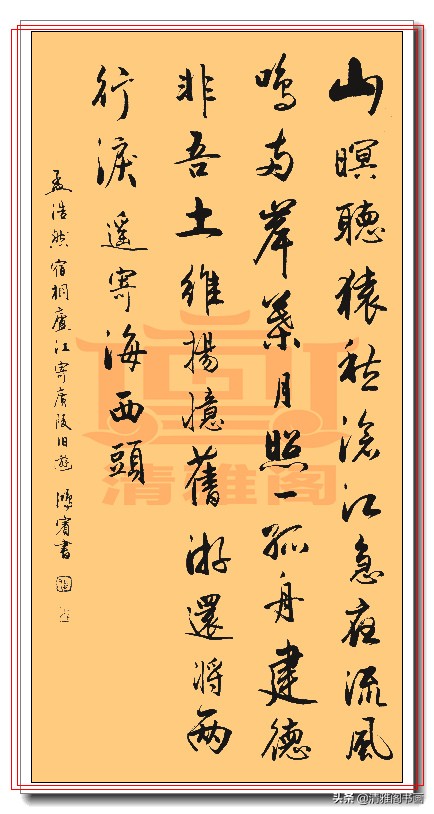 山暝聽猿愁滄江急夜流風
鳴兩岸葉月照一孤舟建德
非吾土維揚憶舊游還將兩
行淚遙寄海西頭
孟浩然宿桐廬江寄廣陵旧遊 鴻賓書
清雅阁
头条 @清雅阁书画